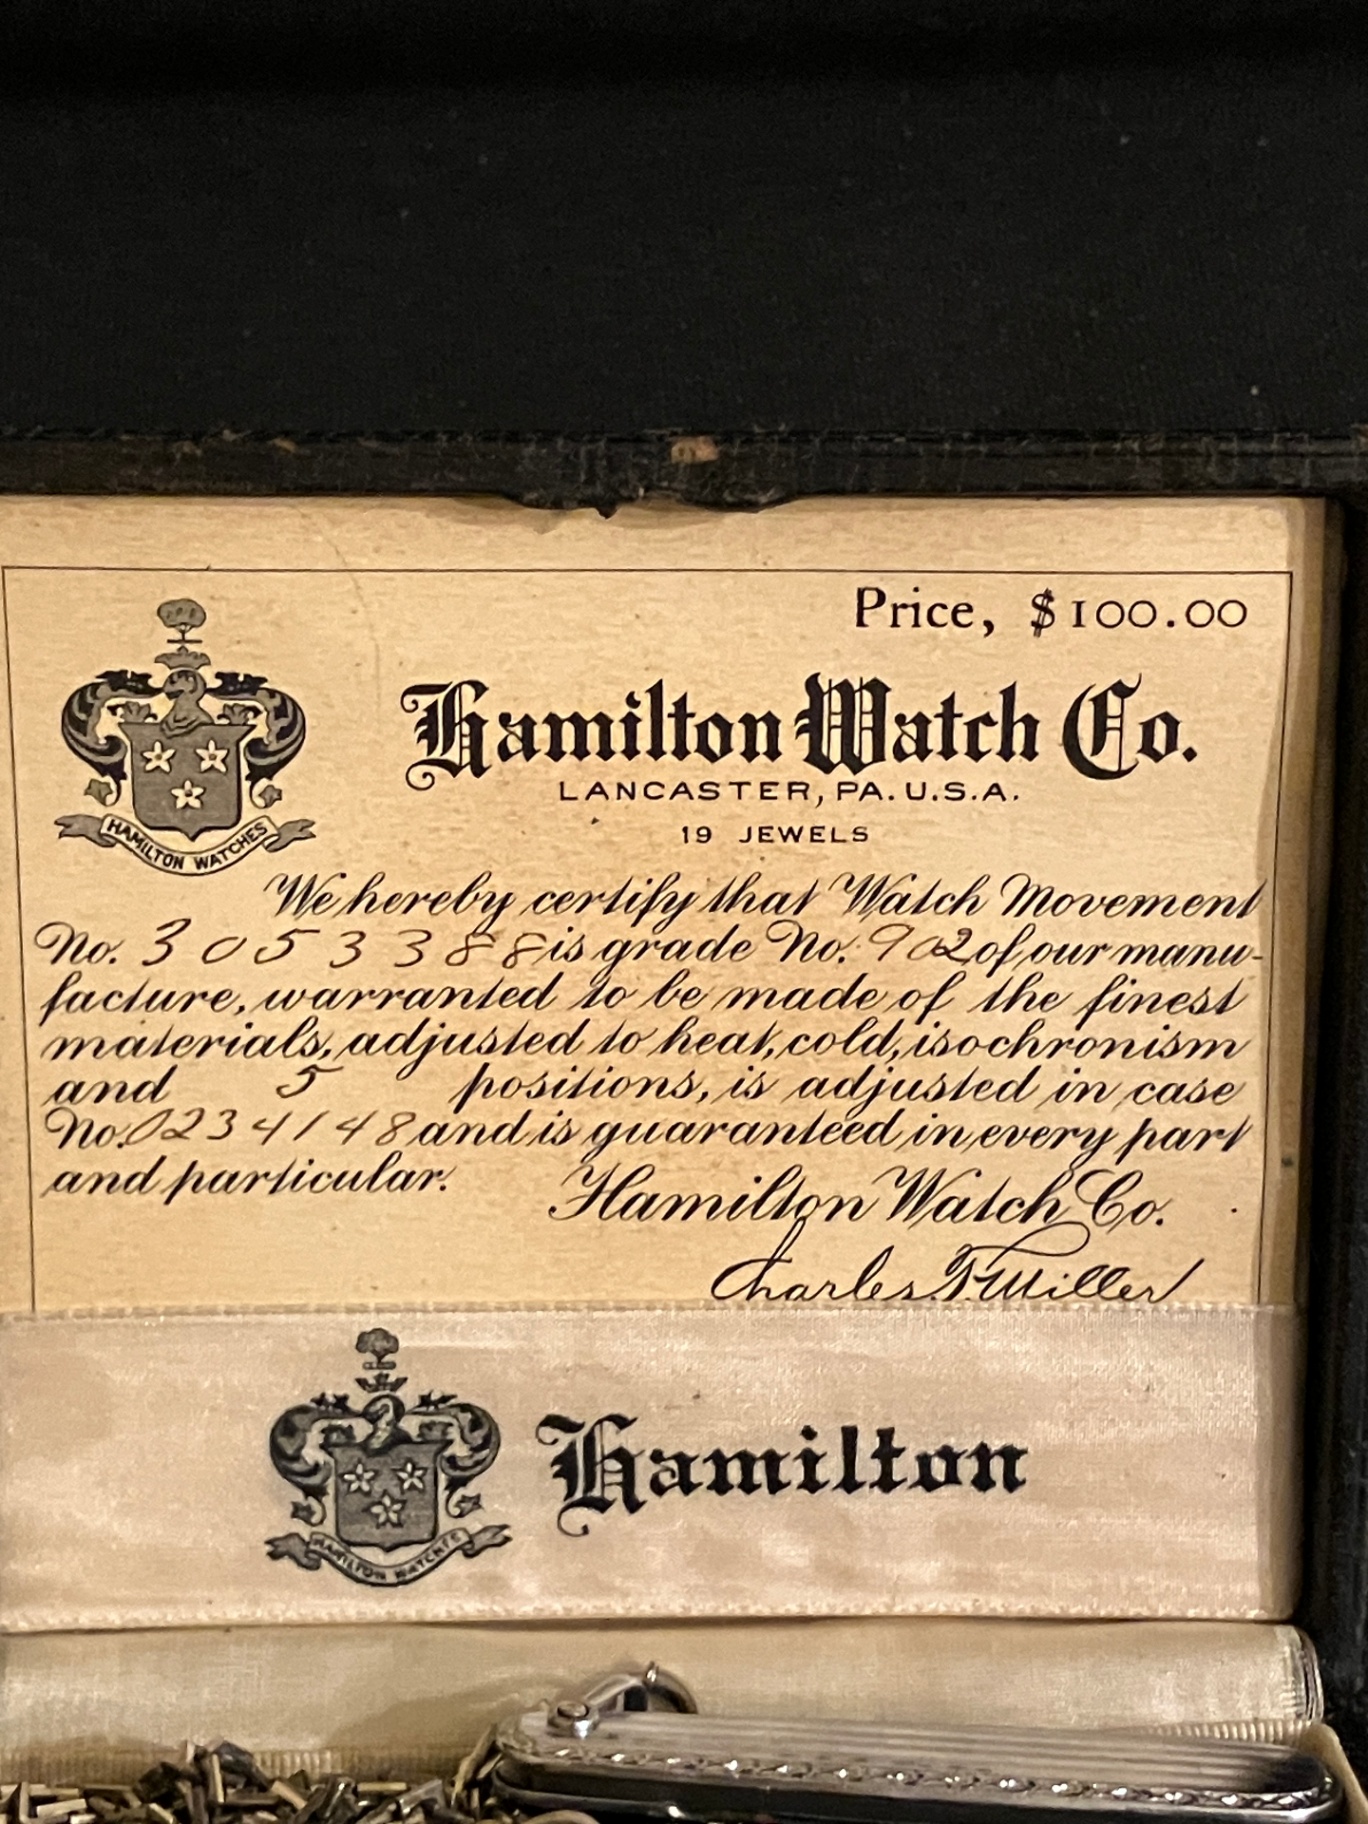 Price, $100.00
Hamilton Watch Co.
LANCASTER, PA. U.S.A.
19 JEWELS
HAMILTON WATCHES
We hereby certify that Watch Movement
No. 3053388 is grade No. 902 of our manu-
facture, warranted to be made of the finest
materials, adjusted to heat, cold, isochronism
and 5 positions, is adjusted in case
No. 0234148 and is guaranteed in every part
and particular.
Hamilton Watch Co.
Charles F. Miller
Hamilton
HAMILTON WATCHES